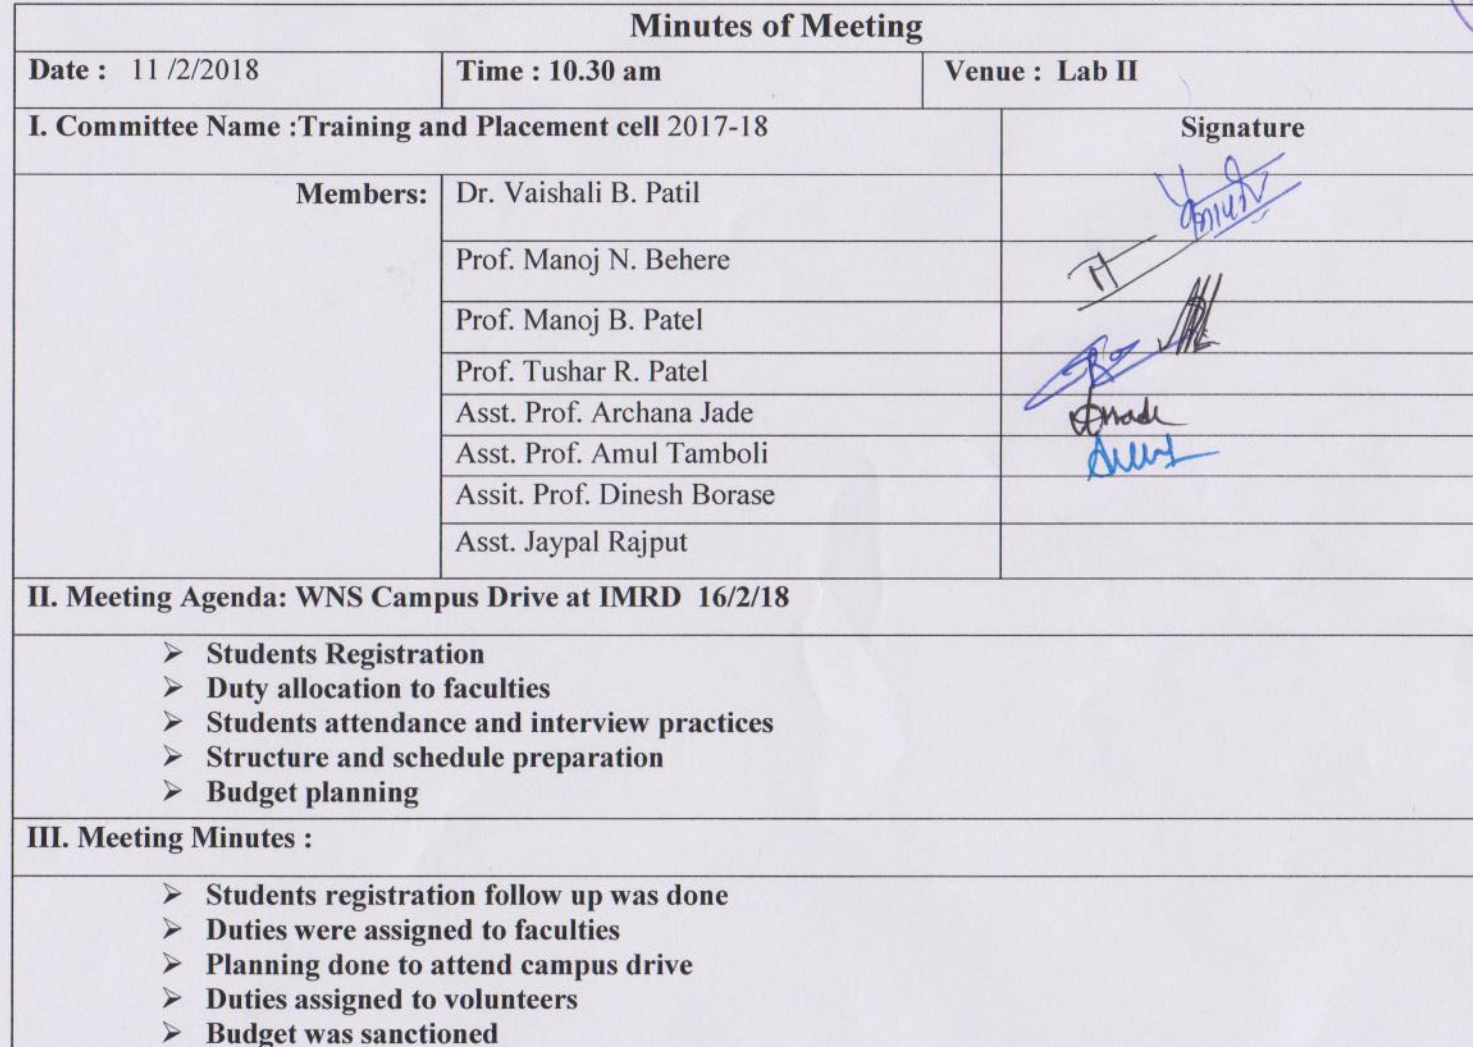 Minutes of Meeting
Date : 11 /2/2018 Time : 10.30 am Venue : Lab II
I. Committee Name :Training and Placement cell 2017-18 Signature
Members: Dr. Vaishali B. Patil
Prof. Manoj N. Behere
Prof. Manoj B. Patel
Prof. Tushar R. Patel
Asst. Prof. Archana Jade
Asst. Prof. Amul Tamboli
Assit. Prof. Dinesh Borase
Asst. Jaypal Rajput
II. Meeting Agenda: WNS Campus Drive at IMRD 16/2/18
➢ Students Registration
➢ Duty allocation to faculties
➢ Students attendance and interview practices
➢ Structure and schedule preparation
➢ Budget planning
III. Meeting Minutes :
➢ Students registration follow up was done
➢ Duties were assigned to faculties
➢ Planning done to attend campus drive
➢ Duties assigned to volunteers
➢ Budget was sanctioned